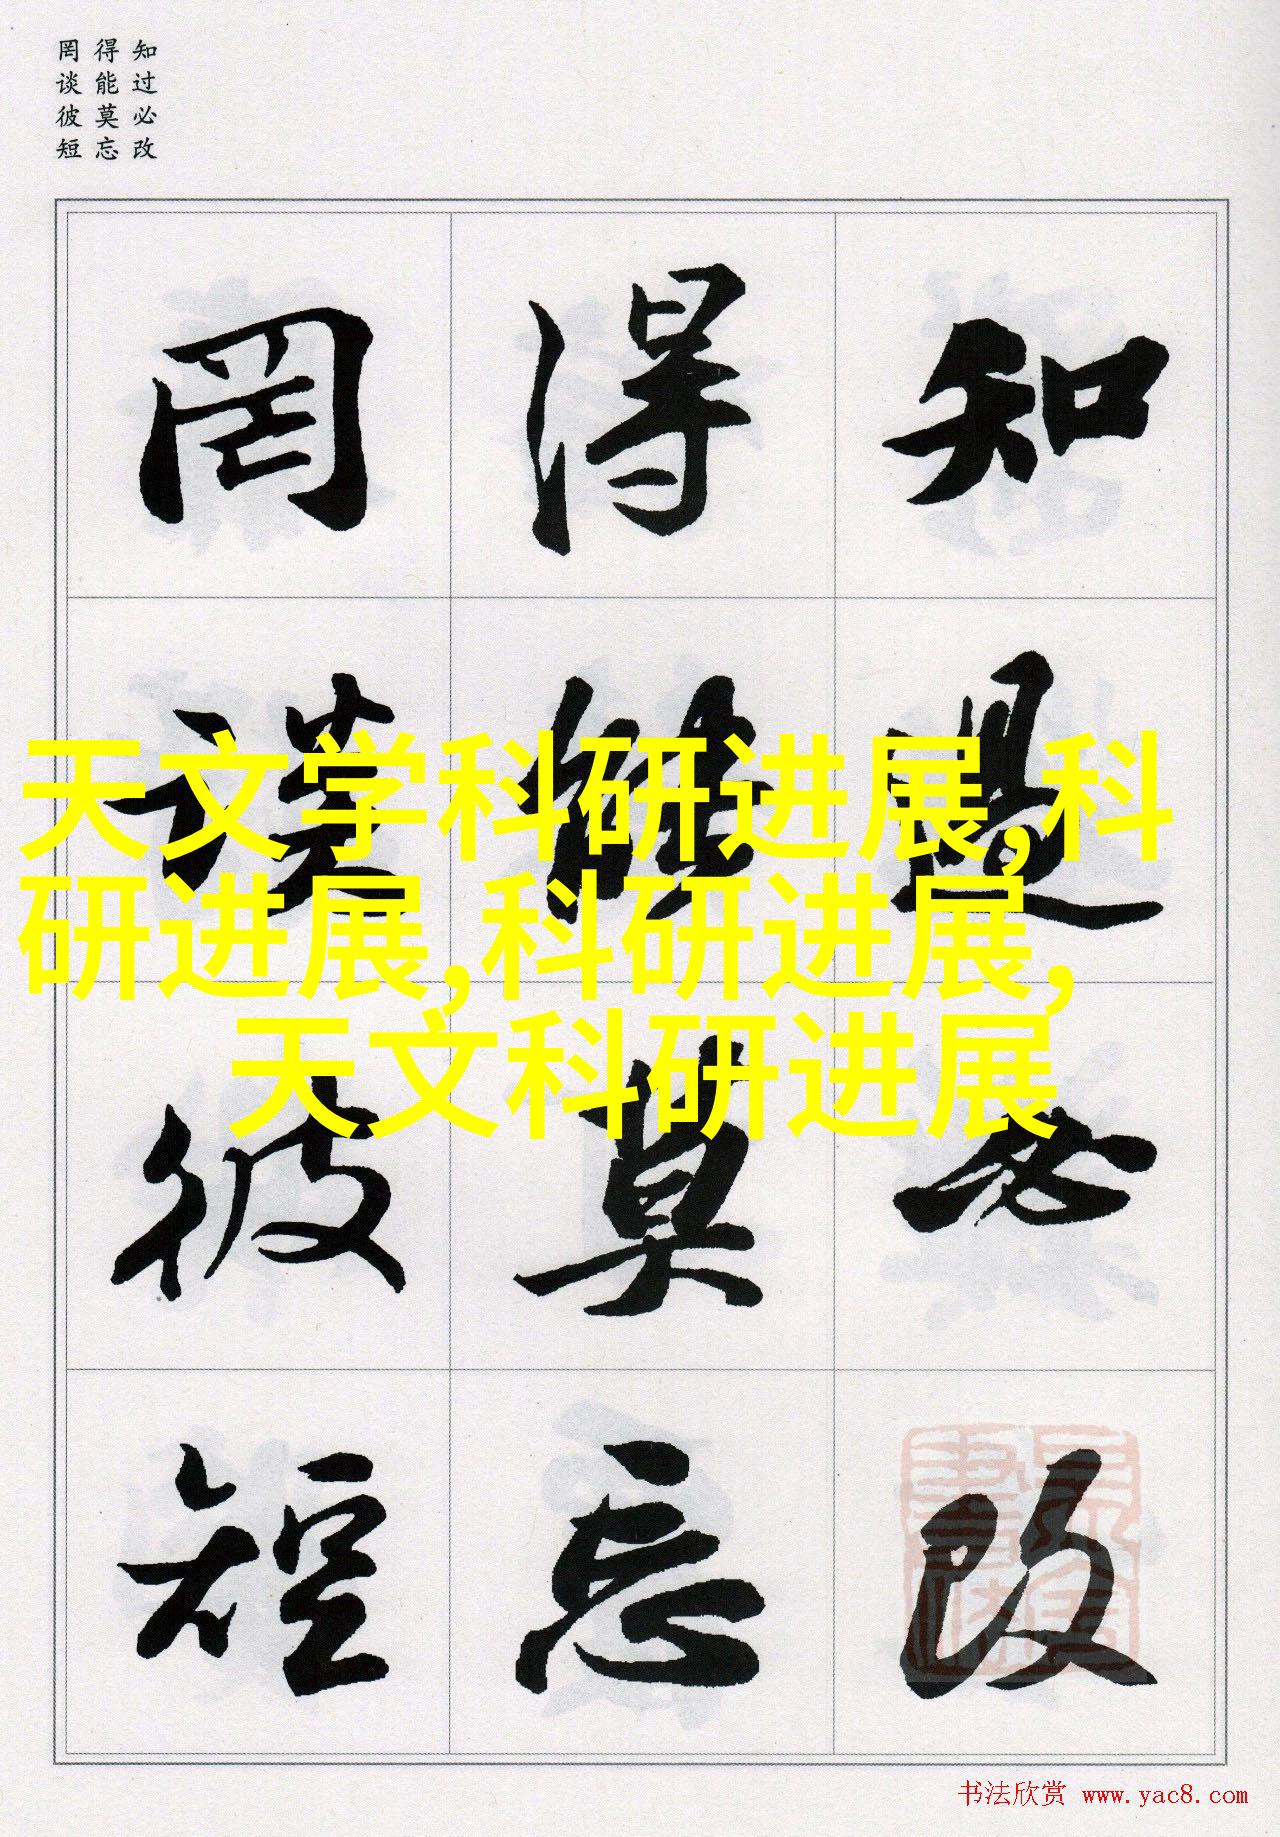 知过必改
得能莫忘
罔谈彼短
知过必改
得能莫忘
罔谈彼短
天文学科研进展,科
研进展,科研进展,
天文科研进展
书法欣赏 www.yac8.com